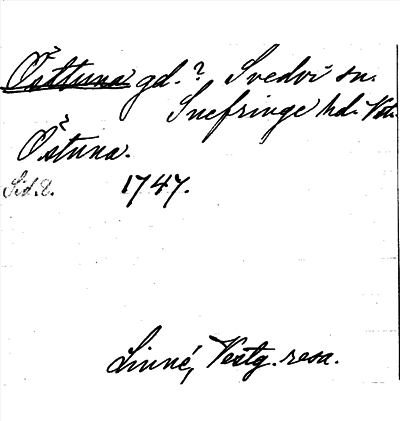 Östtuna gd.? Svedvi sn.
Snefringe hd. Vstm.
Östuna.
Sid. 2. 1747.
Linné, Vestg. resa.